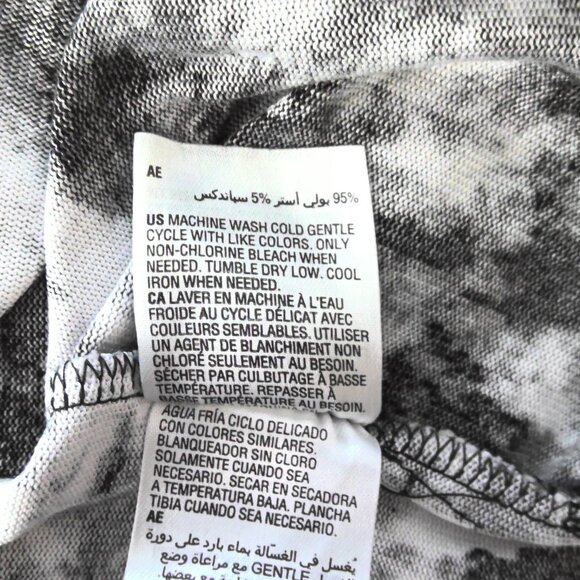 AE
95% بولي أستر 5% سباندكس
US MACHINE WASH COLD GENTLE
CYCLE WITH LIKE COLORS. ONLY
NON-CHLORINE BLEACH WHEN
NEEDED. TUMBLE DRY LOW. COOL
IRON WHEN NEEDED.
CA LAVER EN MACHINE À L'EAU
FROIDE AU CYCLE DÉLICAT AVEC
COULEURS SEMBLABLES. UTILISER
UN AGENT DE BLANCHIMENT NON
CHLORÉ SEULEMENT AU BESOIN.
SÉCHER PAR CULBUTAGE À BASSE
TEMPÉRATURE. REPASSER À
BASSE TEMPÉRATURE AU BESOIN.
AGUA FRÍA CICLO DELICADO
CON COLORES SIMILARES.
BLANQUEADOR SIN CLORO
SOLAMENTE CUANDO SEA
NECESARIO. SECAR EN SECADORA
A TEMPERATURA BAJA. PLANCHA
TIBIA CUANDO SEA NECESARIO.
AE
يُغسل في الغسّالة بماء بارد على دورة
GENTLE مع مراعاة وضع
مع بعضها.